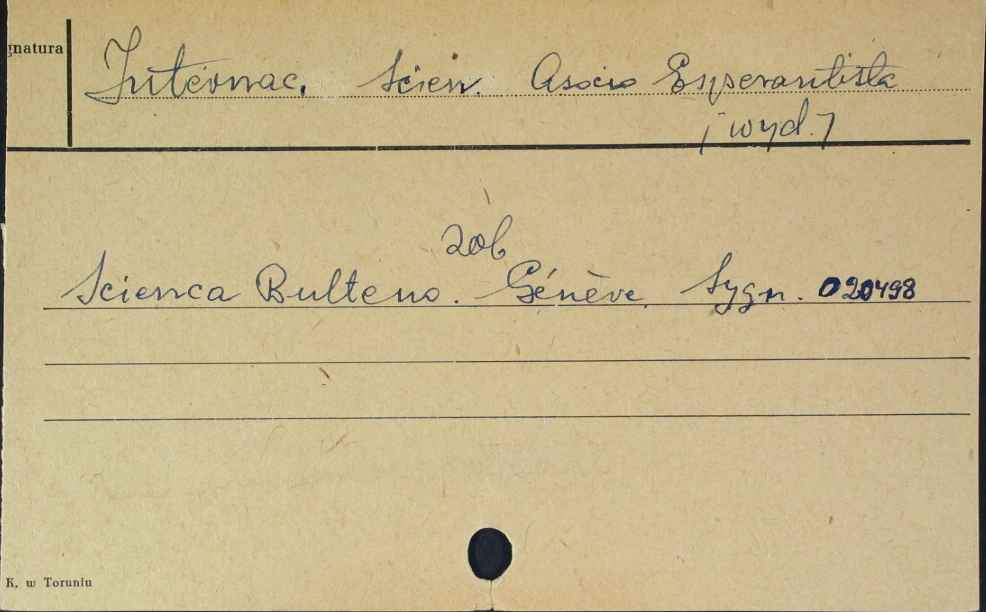 gnatura
Internac. Scien. Asocio Esperantista
/wyd./
zob
Scienca Bulteno. Génève. Sygn. 020498
K. w Toruniu